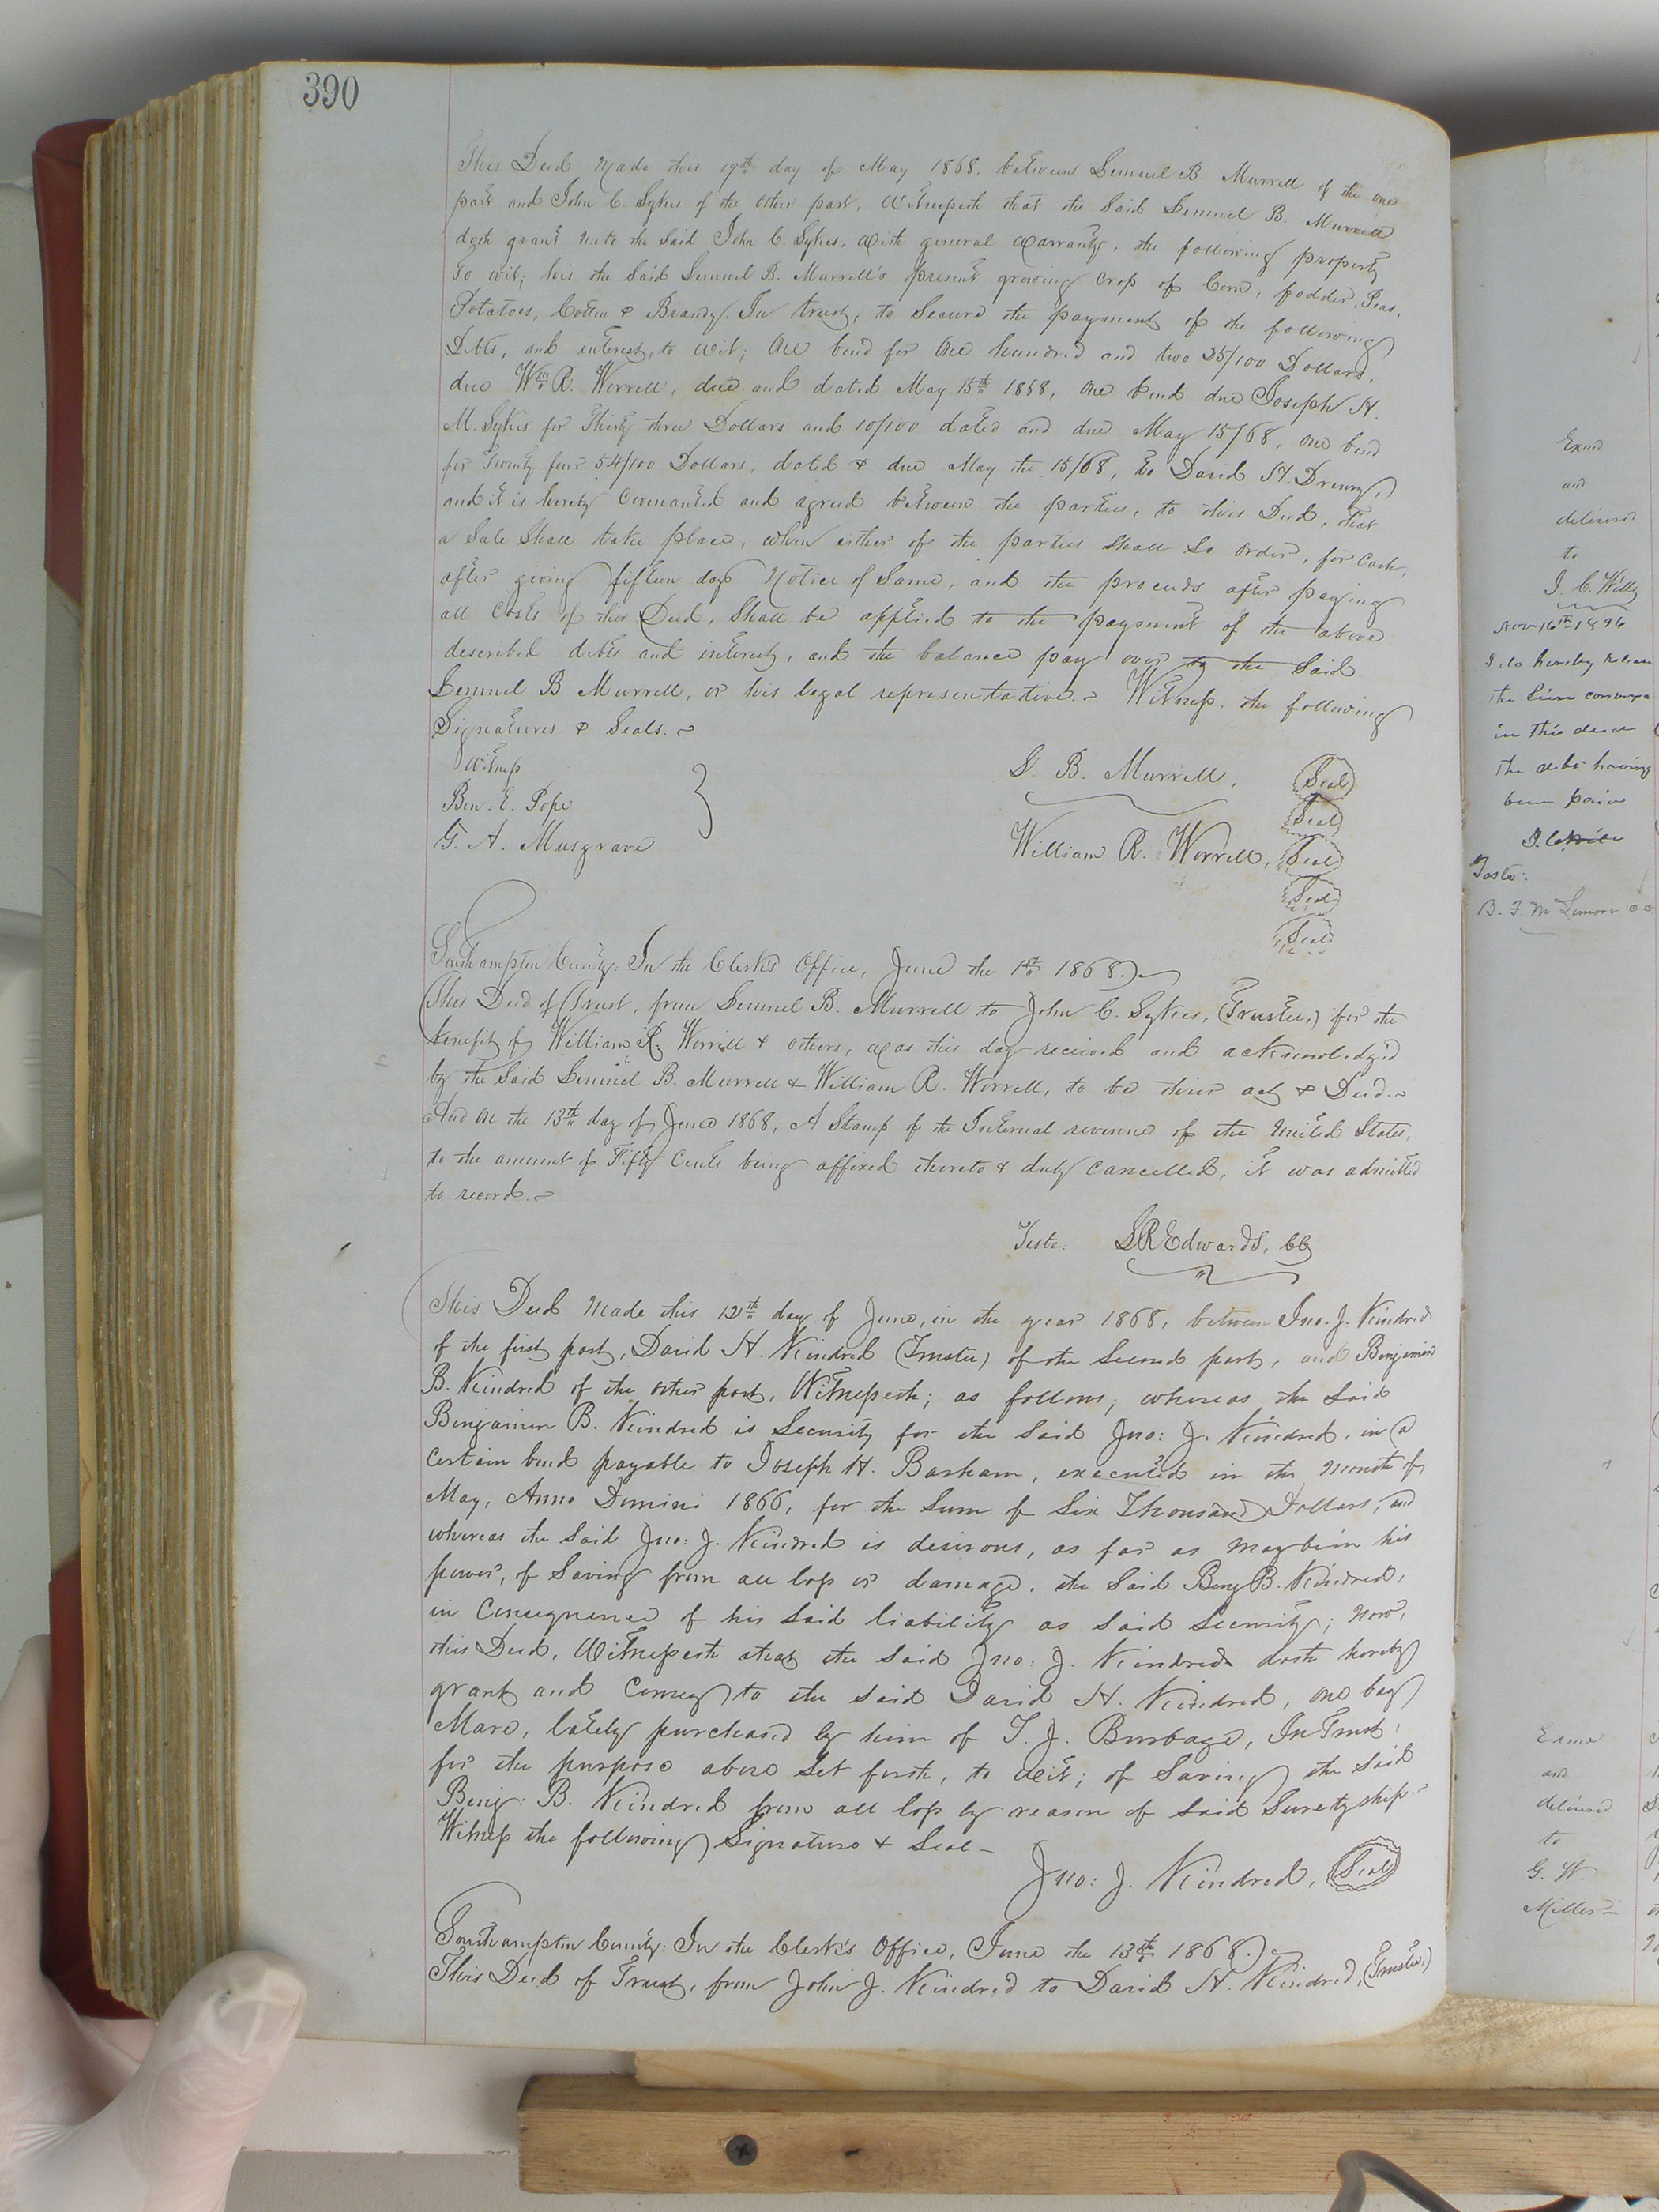 390
This Deed Made this 19th day of May 1868, between Lemuel B. Murrell of the one
part and John C. Sykes of the other part, Witnesseth that the Said Lemuel B. Murrell
doth grant unto the Said John C. Sykes, with general warranty, the following property
to wit; his the Said Lemuel B. Murrell's present growing crop of Corn, fodder, Peas,
Potatoes, Cotton & Brandy. In trust, to Secure the payment of the following
Debts, and interest, to wit; One bond for One hundred and two 35/100 Dollars,
due Wm R. Worrell, due and dated May 15th 1868, One bond due Joseph H.
M. Sykes for Thirty three Dollars and 10/100 dated and due May 15/68, one bond
for Twenty four 54/100 Dollars, dated & due May the 15/68, to David H. Drewry,
and it is hereby Covenanted and agreed between the parties, to this Deed, that
a Sale Shall take place, when either of the parties Shall So order, for Cash,
after giving fifteen days Notice of Same, and the proceeds after paying
all Costs of this Deed, Shall be applied to the payment of the above
described debts and interest, and the balance pay over to the Said
Lemuel B. Murrell, or his legal representative. Witness, the following
Signatures & Seals.
Witness
Ben: E. Pope
G. A. Musgrave
L. B. Murrell, Seal
Seal
William R. Worrell, Seal
Seal
Seal
Southampton County: In the Clerk's Office, June the 1st 1868.
This Deed of Trust, from Lemuel B. Murrell to John C. Sykes, (Trustee,) for the
benefit of William R. Worrell & others, was this day received and acknowledged
by the Said Lemuel B. Murrell & William R. Worrell, to be their act & Deed.
And on the 13th day of June 1868, A Stamp of the Internal revenue of the United States,
to the amount of Fifty Cents being affixed thereto & duly Cancelled, it was admitted
to record.
Teste: LREdwards, CC
This Deed Made this 12th day of June, in the year 1868, between Jno. J. Kindred
of the first part, David H. Kindred (Trustee) of the Second part, and Benjamin
B. Kindred of the other part, Witnesseth; as follows; whereas the Said
Benjamin B. Kindred is Security for the Said Jno: J. Kindred, in a
Certain bond payable to Joseph H. Barham, executed in the Month of
May, Anno Domini 1866, for the Sum of Six Thousand Dollars, and
whereas the Said Jno: J. Kindred is desirous, as far as may be in his
power, of Saving from all loss or damage, the Said Benj B. Kindred,
in Consequence of his Said liability as Said Security; Now,
this Deed, Witnesseth that the Said Jno: J. Kindred doth hereby
grant and Convey to the Said David H. Kindred, one bay
Mare, lately purchased by him of T. J. Burbage, In Trust,
for the purpose above Set forth, to wit; of Saving the Said
Benj: B. Kindred from all loss by reason of Said Suretyship.
Witness the following Signature & Seal
Jno: J. Kindred, Seal
Southampton County: In the Clerk's Office, June the 13th 1868.
This Deed of Trust, from John J. Kindred to David H. Kindred, (Trustee,)
Examd
and
delivered
to
Nov 16th 1896
I do hereby release
the lien conveyed
in this deed
the debt having
been paid
Teste:
Examd
and
delivered
to
G. W.
Miller